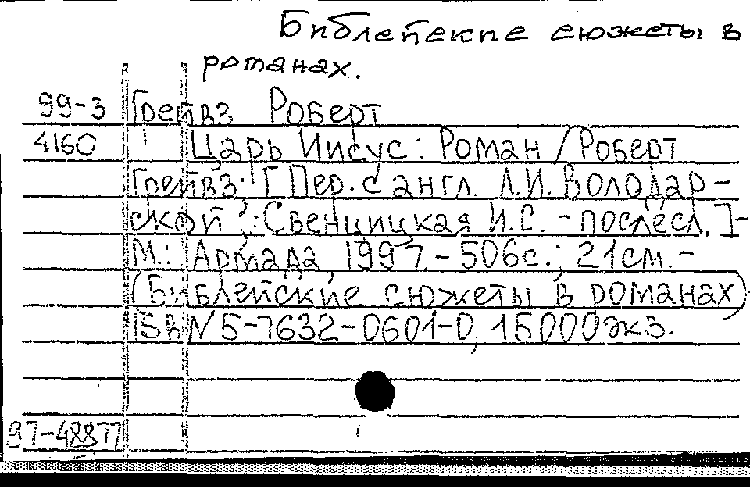 Библейские сюжеты в
романах.
99-3 Грейвз Роберт
4160 Царь Иисус: Роман / Роберт
Грейвз; [Пер. с англ. Л.И. Володар-
ской; Свенцицкая И.С. - послесл.]-
М.: Армада, 1997. - 506с.; 21см. -
(Библейские сюжеты в романах)
ISBN 5-7632-0601-0, 15000экз.
97-48877